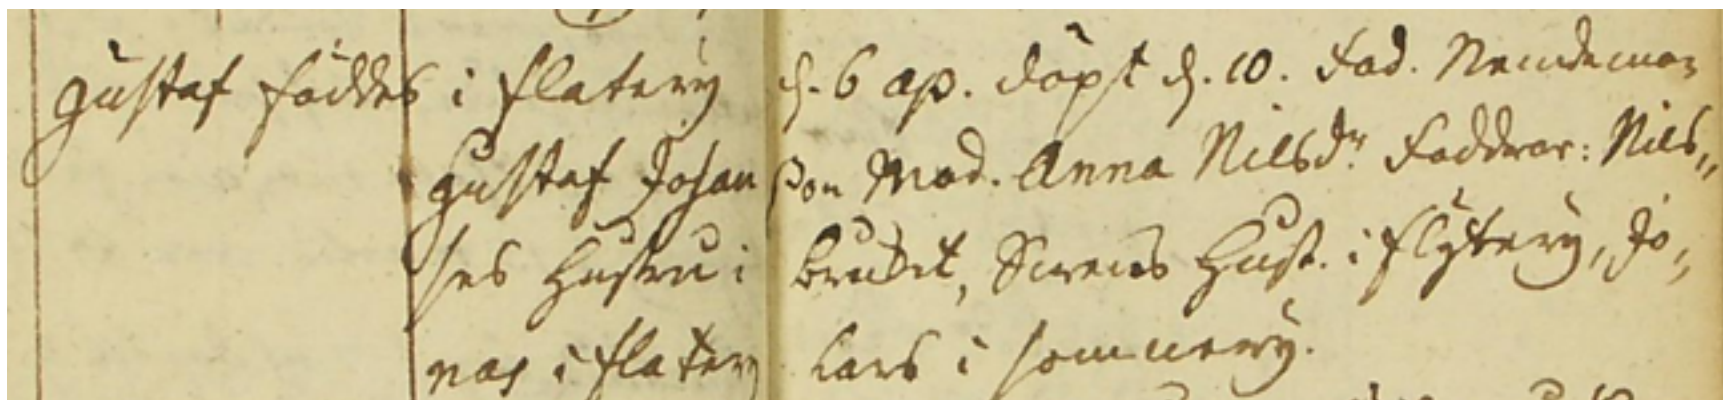 Gustaf föddes i Flateryd d. 6 ap. döpt d. 10. Fad. Rendeman
Gustaf Johanßon Mod. Anna Nilsdr. Faddrar: Nils,,
ses Hustru i brudet, Swens Hust. i Flÿterÿd, Jo,,
nas i Flateryd Lars i